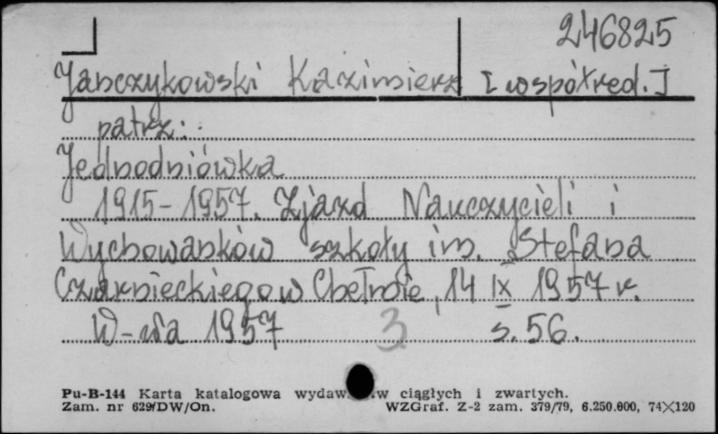 246825
Janczykowski Kazimierz [współred.]
patrz:
Jednodniówka
1915-1957. Zjazd Nauczycieli i
Wychowanków szkoły im. Stefana
Czarnieckiego w Chełmie, 14 IX 1957 r.
W-wa 1957 3 s. 56.
Pu-B-144 Karta katalogowa wydaw. w ciągłych i zwartych.
Zam. nr 629/DW/On. WZGraf. Z-2 zam. 379/79, 6.250.000, 74×120